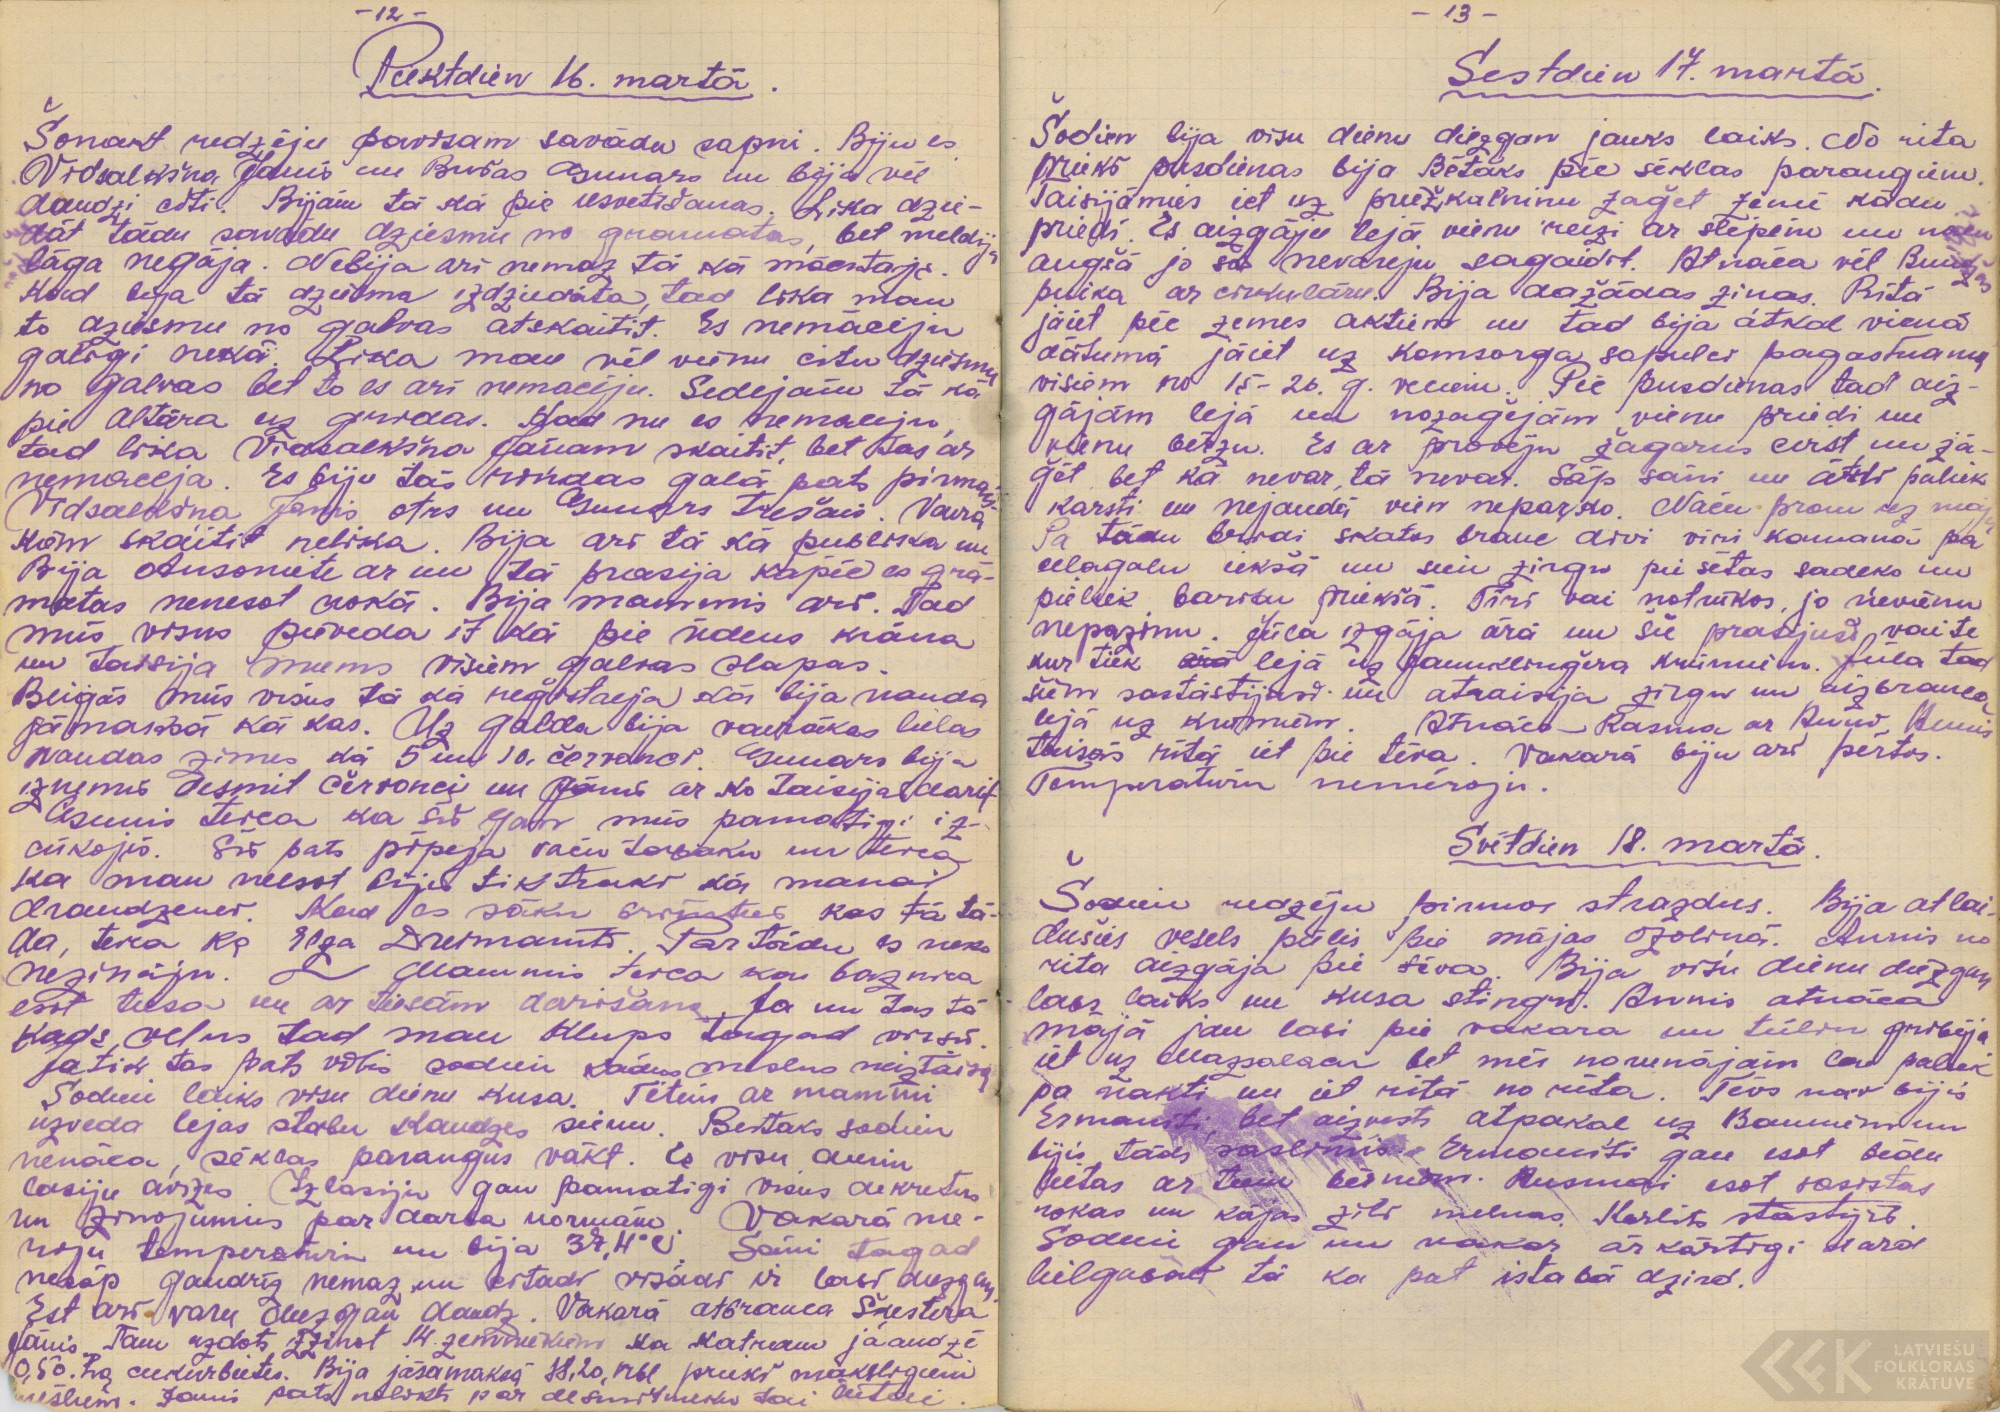 -12-
Piektdien 16. martā.
Šonakt redzēju pavisam savādu sapni. Biju es
Vidsalkšna Jānis un Bušas Gunars un bija vēl
daudzi citi. Bijām tā kā pie iesvetišanas. Lika dzie-
dāt tādu savādu dziesmu no gramatas, bet meldija
lāga negāja. Nebija ari nemaz tā kā mācitajs.
Kad bija tā dziesma izdziedāta, tad lika man
to dziesmu no galvas atskaitit. Es nemāceju
galigi nekā. Lika man vēl vienu citu dziesmu
no galvas bet to es ari nemaceju. Sedejām tā kā
pie altāra uz gridas. Kad nu es nemaceju,
tad lika Vidsalkšna Jānam skaitit, bet tas ar
nemaceja. Es biju tās rindas galā pats pirmais
Vidsalkšna Janis otrs un Gunars trešais. Vairā
kām skaitit nelika. Bija ari tā kā publika un
Bija Ansomite ar un tā prasija kāpēc es grā-
matas nenesot nokā. Bija mammis ari. Tad
mūs visus pieveda it kā pie ūdens krāna
un taisija mums visiem galvas slapas.
Beigās mūs visus tā kā reģistreja kā bija nauda
jāmaksā kā kas. Uz galda bija vairākas lielas
naudas zimes kā 5 un 10. červonci. Gunars bija
izņemis desmit červonci un Jānis ar ko taisijas darit
Gunis teica ka šis gan mūs pamatigi iz-
cūkojis. Šis pats pīpeja vācu tabaku un teica
ka man neesot bijis tik traki kā manai
draudzenei. Kad es sāku brinities kas tā tā-
da, teica ka Elga Dreimante. Par tādu es neko
nezināju. Mammis teica kan baznica
esot tiesa un ar tiesām darišana. Ja nu tas tā
kads velns tad man klups tagad virsū.
ja tik tas pats vēlis sodien kādus meslus neiztaisa
Sodien laiks visu dienu kusa. Tētiņs ar mammi
uzveda lejas stabu kaudzes sienu. Bertaks sodien
nenāca, sēklas paraugus vākt. Es visu dienu
lasiju avizes. Izlasiju gan pamatigi visus dekretus
un ziņojumus par darba normām. Vakarā me-
roju temperaturu un bija 37,4°C. Sāni tagad
nesāp gandrīz nemaz un citadi visādi ir labi diezgan.
Est ari varu diezgan daudz. Vakarā atbrauca Šķestera
Jānis. Tam uzdots izziņot 14. zemniekiem ka katram jāaudzē
0,50. ha cukurbietes. Bija jāsamaksā 18,20, rbl priekš mākslīgiem
mēsliem. Janis pats nolikts par desmitnieku tai lietai.
-13-
Sestdien 17. martā.
Šodien bija visu dienu diezgan jauks laiks. No rita
priekš pusdienas bija Bētaks pie sēklas paraugiem.
Taisijāmies iet uz priežkalninu zaģet zemē kādu
priedi. Es aizgāju lejā vienu reizi ar slēpēm un nācu
augšā jo šos nevareju sagaidit. Atnāca vēl Bundžas
puika ar cirkulāru. Bija dažādas ziņas. Ritā
jāiet pēc zemes aktiem un tad bija atkal vienā
dātumā jāiet uz komsorga sapulci pagastnamā
visiem no 15-26. g. veciem. Pēc pusdienas tad aiz-
gājām lejā un nozagējām vienu priedi un
vienu bērzu. Es ar proveju žagarus cirst un zā-
ģet bet kā nevar, tā nevar. Sāp sāni un ātri paliek
karsti un nejaudā vien neparko. Nācu prom uz māju
Pa tādu brīdi skatos brauc divi viri kamanā pa
celagalu iekšā un sien zirgu pie sētas sadeko un
pieliek barību priekšā. Tiri vai notrūkos, jo nevienu
nepazinu. Jūca izgāja ārā un šie prasijuši, vai te
kur tiek lejā uz Jaunklinģera krūmiem. Jūla tad
šiem sastāstijusi un atraisija zirgu un aizbrauca
lejā uz krumiem. Atnāca Rasma ar Anni. Annis
taisas ritā iet pie tēva. Vakarā biju ari pērtos.
Temperaturu nemēroju.
Svētdien 18. martā.
Šodien redzēju pirmos strazdus. Bija atlai-
dušies vesels pulis pie mājas ozolinā. Annis no
rita aizgāja pie sēva. Bija visu dienu diezgan
labs laiks un kusa stingri. Annis atnāca
mājā jau labi pie vakara un tūlin gribēja
iet uz Mazsalacu bet mēs norunājām lai paliek
pa nakti un iet ritā no rita. Tevs nav bijis
Ermaniti, bet aizvests atpakal uz Bauņiem un
bijis tāds saslimis. Ermaniti gan esot bēdu
lietas ar tiem bērniem. Ausmai esot sasistas
rokas un kājas zili melnas. Karlits stastijis.
Šodien gan un vakar ārkārtigi skard
lielgabali tā ka pat istabā dzird.
LATVIEŠU
FOLKLORAS
KRĀTUVE